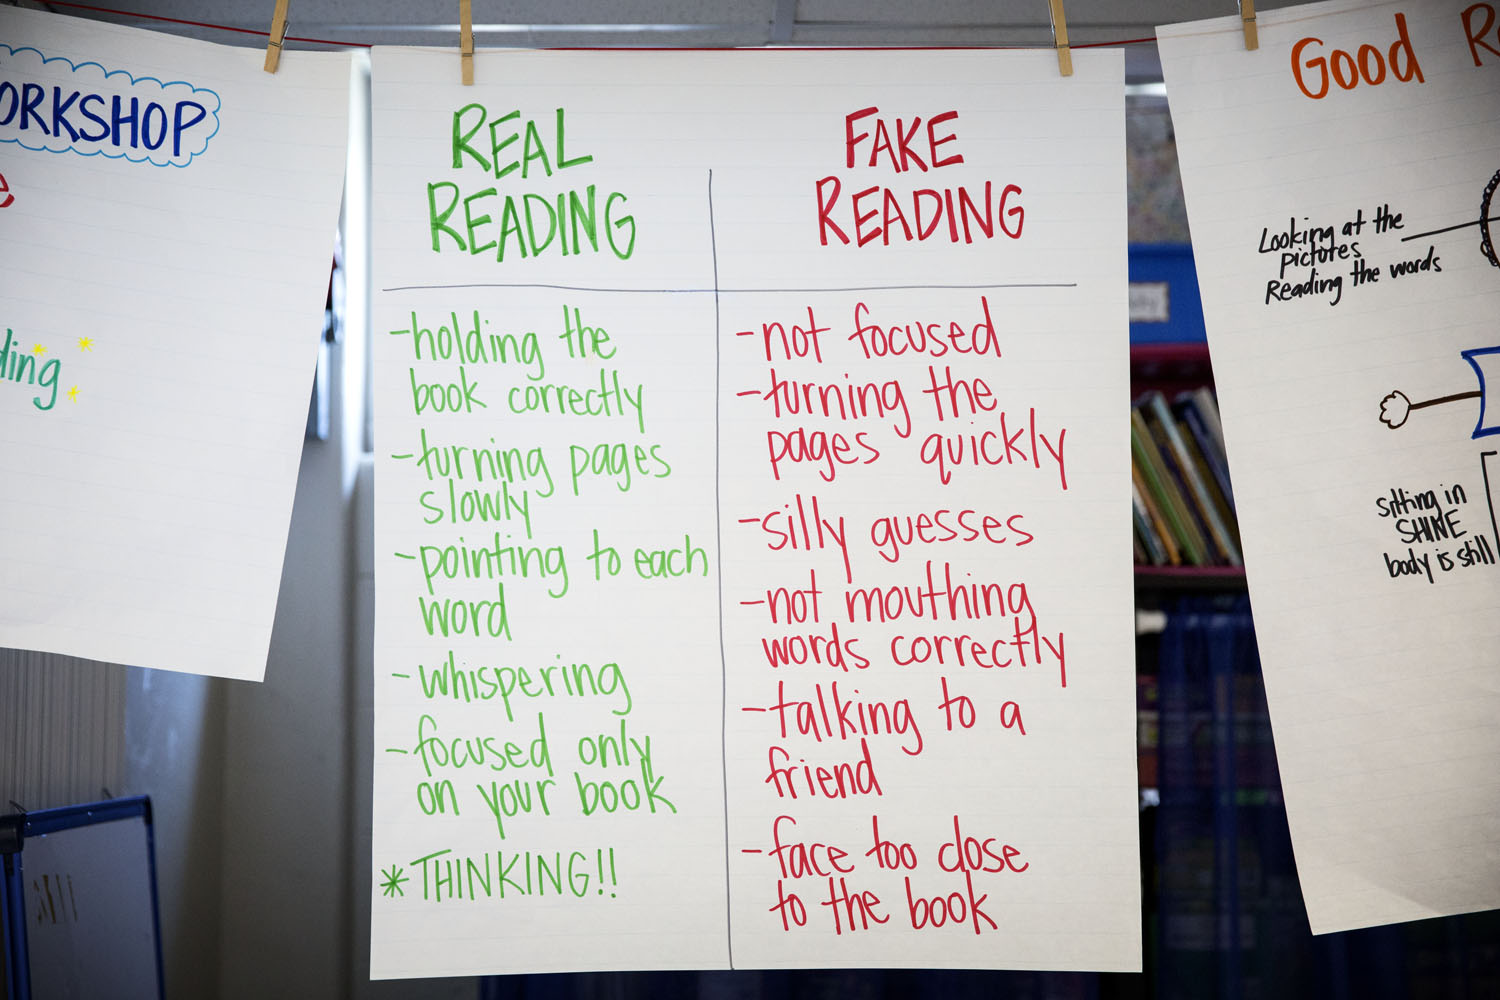 ORKSHOP
e
ding
REAL
READING
-holding the
book correctly
-turning pages
slowly
-pointing to each
word
-whispering
-focused only
on your book
*THINKING!!
FAKE
READING
-not focused
-turning the
pages quickly
-silly guesses
-not mouthing
words correctly
-talking to a
friend
-face too close
to the book
Good R
Looking at the
pictures
Reading the words
sitting in
SHINE
body is still